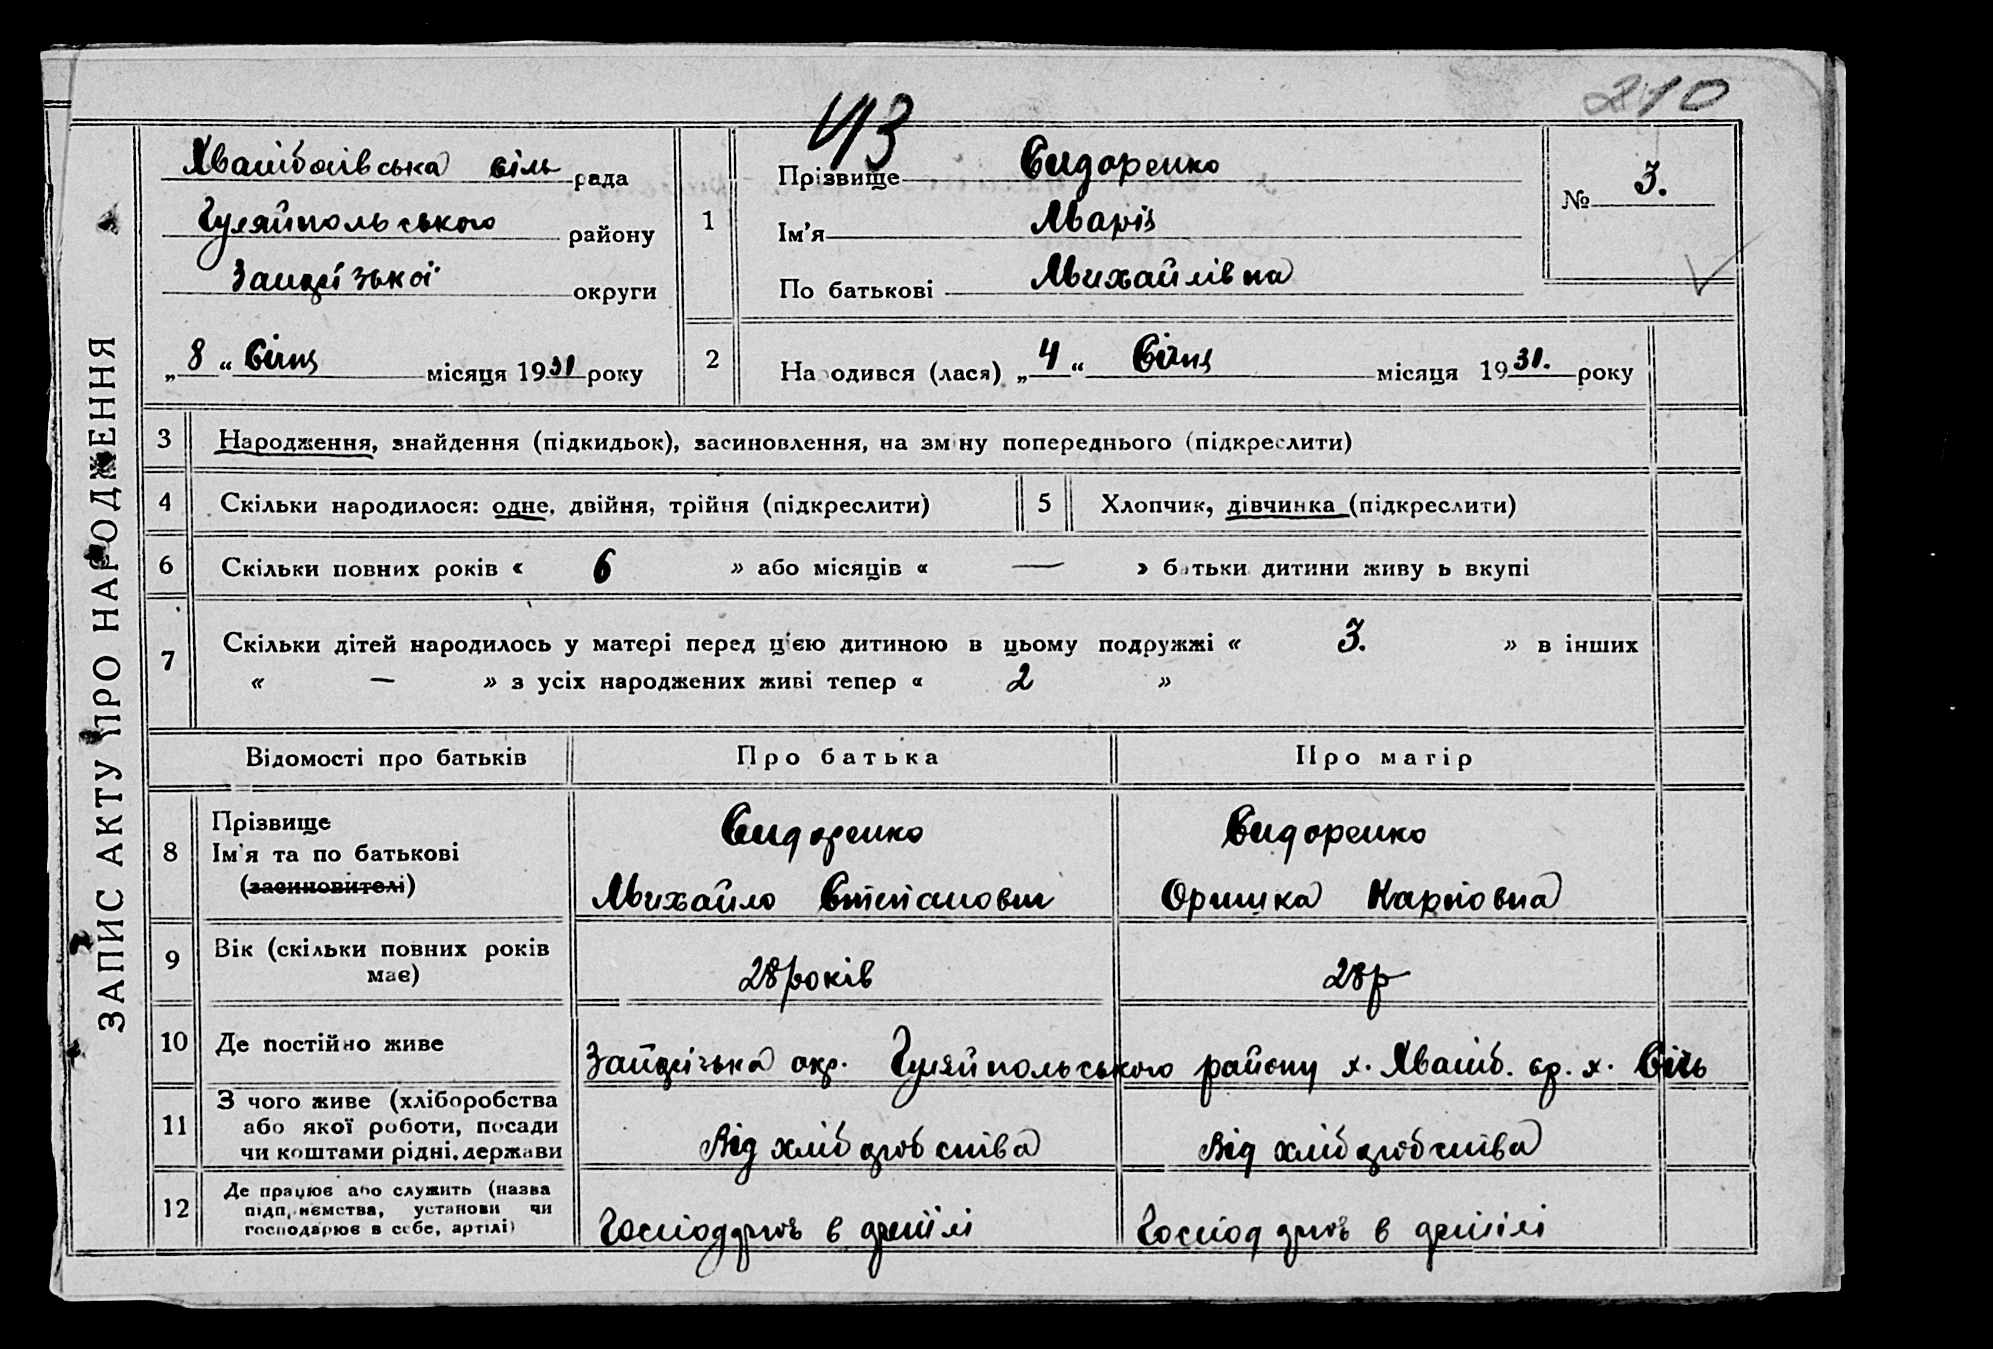 210
43
ЗАПИС АКТУ ПРО НАРОДЖЕННЯ
сіль рада
Гуляйпольського району
округи
„ 8 “ Січня місяця 1931 року
1
Прізвище Сидоренко
Ім'я Марія
По батькові Михайлівна
№ 3.
2
Народився (лася) „ 4 “ Січня місяця 1931. року
3 Народження, знайдення (підкидьок), засиновлення, на зміну попереднього (підкреслити)
4 Скільки народилося: одне, двійня, трійня (підкреслити) 5 Хлопчик, дівчинка (підкреслити)
6 Скільки повних років « 6 » або місяців « — » батьки дитини живуть вкупі
7 Скільки дітей народилось у матері перед ц'єю дитиною в цьому подружжі « 3. » в інших
« — » з усіх народжених живі тепер « 2 »
Відомості про батьків Про батька Про матір
8 Прізвище
Ім'я та по батькові
(засиновителі)
Сидоренко
Михайло Степанович
Сидоренко
Оришка Карповна
9 Вік (скільки повних років
має)
28 років 28 р
10 Де постійно живе
окр. Гуляйпольського району х.
11 З чого живе (хліборобства
або якої роботи, посади
чи коштами рідні, держави
Від хліборобства Від хліборобства
12 Де працює або служить (назва
підприємства, установи чи
господарює в себе, артілі)
Господарює в артілі Господарює в артілі